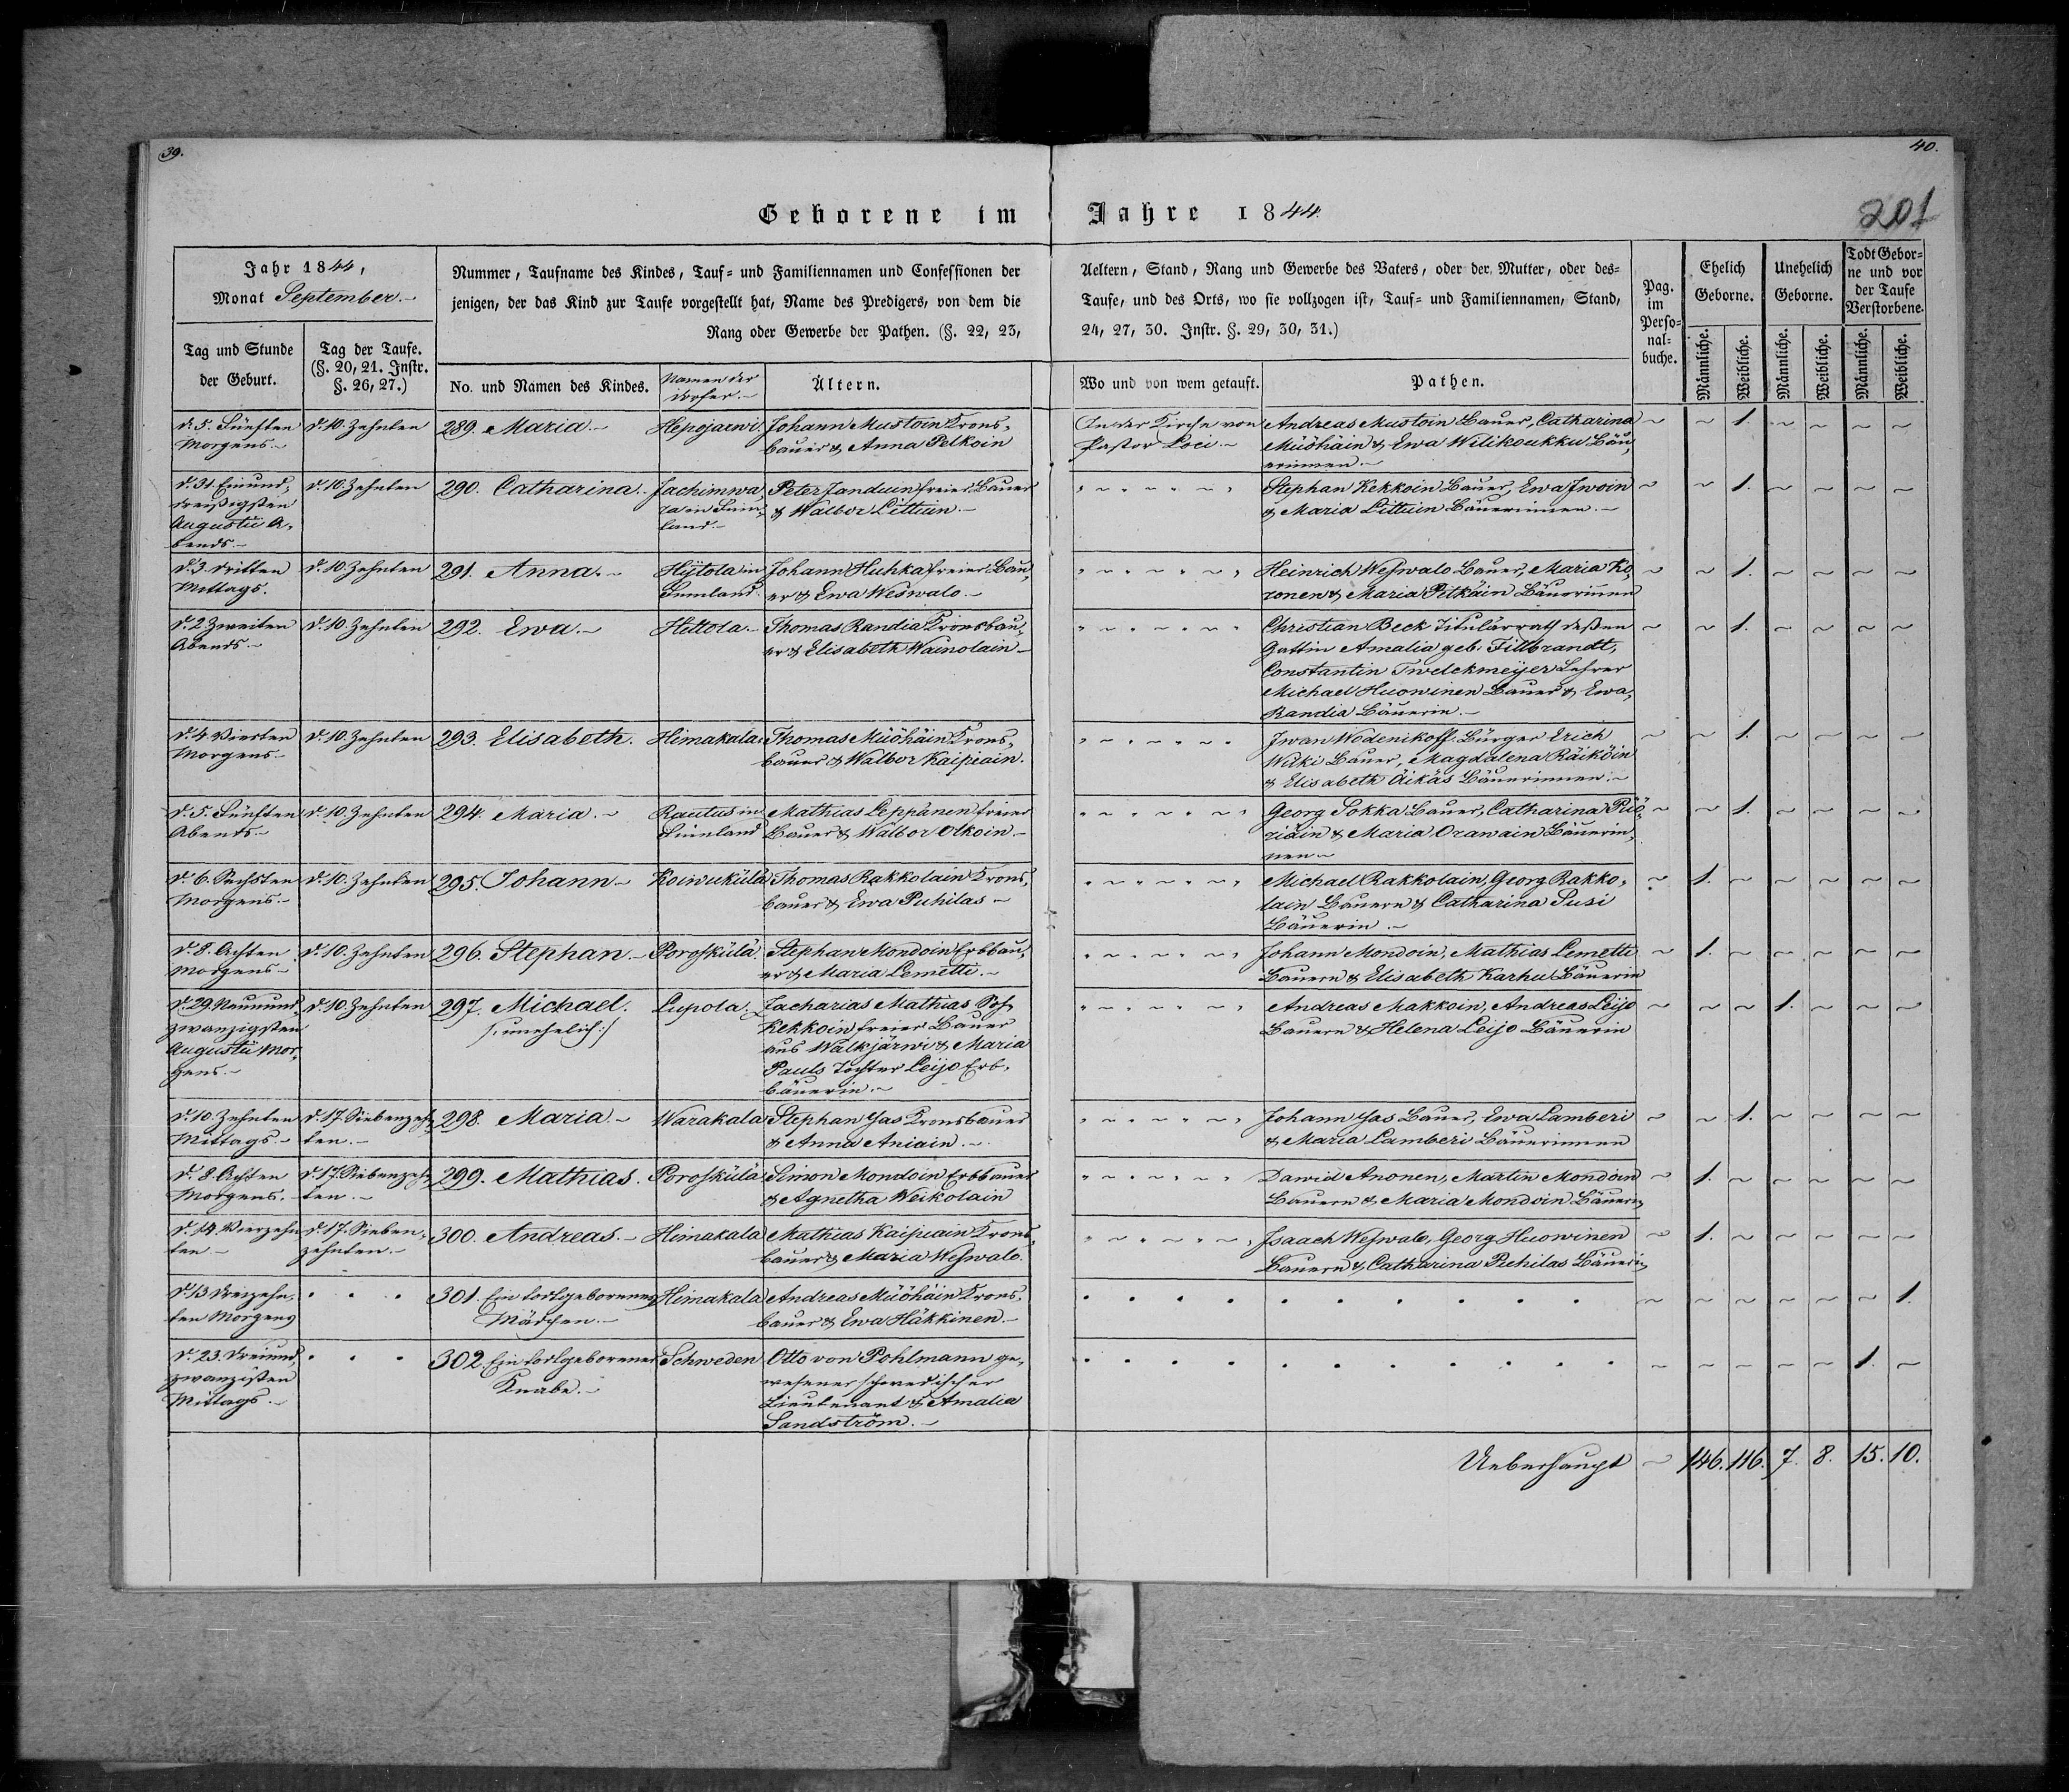 39.
40.
201
Geborene im Jahre 1844.
Jahr 1844,
Monat September.
Tag und Stunde
der Geburt.
Tag der Taufe.
(§. 20, 21. Instr.
§. 26, 27.)
Nummer, Taufname des Kindes, Tauf- und Familiennamen und Confessionen der Aeltern, Stand, Rang und Gewerbe des Vaters, oder der Mutter, oder des-
jenigen, der das Kind zur Taufe vorgestellt hat, Name des Predigers, von dem die Taufe, und des Orts, wo sie vollzogen ist, Tauf- und Familiennamen, Stand,
Rang oder Gewerbe der Pathen. (§. 22, 23, 24, 27, 30. Instr. §. 29, 30, 31.)
No. und Namen des Kindes.
Namen der
Dörfer.
Ältern.
Wo und von wem getauft.
Pathen.
Pag.
im
Perso-
nal-
buche.
Ehelich
Geborne.
Unehelich
Geborne.
Todt Gebor-
ne und vor
der Taufe
Verstorbene.
Männliche. Weibliche. Männliche. Weibliche. Männliche. Weibliche.
d. 5. Fünften
Morgens.
d. 10. Zehnten
289. Maria.
Hepojarwi.
Johann Mustoin Krons-
bauer & Anna Pelkoin
In der Kirche von
Pastor Loci.
Andreas Mustoin Bauer, Catharina
Müöhäin & Ewa Wilikoukku Bäu-
erinnen.
1.
d. 31. Einund-
dreißigsten
Augusti A-
bends.
d. 10. Zehnten
290. Catharina.
Jachimwa-
ra in Finn-
land.
Peter Janduin freier Bauer
& Walbor Littuin.
Stephan Kekkoin Bauer, Ewa Iwoin
& Maria Littuin Bäuerinnen.
1.
d. 3. Dritten
Mittags.
d. 10. Zehnten
291. Anna.
Hiitola in
Finnland.
Johann Huhka freier Bau-
er & Ewa Weswalo.
Heinrich Weßwalo Bauer, Maria Ko-
ronen & Maria Pitkäin Bäuerinnen
1.
d. 2. Zweiten
Abends.
d. 10. Zehnten
292. Ewa.
Hettola.
Thomas Randia Kronsbau-
er & Elisabeth Wainolain
Christian Beck Titulärrath deßen
Gattin Amalia geb. Fillbrandt,
Constantin Twelckmeyer Lehrer
Michael Huowinen Bauer & Ewa
Randia Bäuerin.
1.
d. 4. Vierten
Morgens.
d. 10. Zehnten
293. Elisabeth.
Himakala
Thomas Müöhäin Krons-
bauer & Walbor Kaipiain.
Iwan Wodenikoff Bürger Erich
Wäki Bauer, Magdalena Räiköin
& Elisabeth Äikäs Bäuerinnen.
1.
d. 5. Fünften
Abends.
d. 10. Zehnten
294. Maria.
Rautus in
Finnland
Mathias Leppänen freier
Bauer & Walbor Olkoin.
Georg Sokka Bauer, Catharina Püö-
riäin & Maria Orawain Bäuerin-
nen.
1.
d. 6. Sechsten
Morgens.
d. 10. Zehnten
295. Johann.
Koiwuküla
Thomas Rakkolain Krons-
bauer & Ewa Puhilas
Michael Rakkolain, Georg Rakko-
lain Bauern & Catharina Susi
Bäuerin.
1.
d. 8. Achten
Morgens.
d. 10. Zehnten
296. Stephan.
Poroskülä
Stephan Mondoin Erbbau-
er & Maria Lemetti.
Johann Mondoin, Mathias Lemetti
Bauern & Elisabeth Karhu Bäuerin
1.
d. 29. Neunund-
zwanzigsten
Augusti Mor-
gens.
d. 10. Zehnten
297. Michael.
/: unehelich :/
Lupola.
Zacharias Mathias Soh.
Kekkoin freier Bauer
aus Walkjärwi & Maria
Pauls Tochter Leijo Erb-
bäuerin.
Andreas Makkoin, Andreas Leijo
Bauern & Helena Leijo Bäuerin
1.
d. 10. Zehnten
Mittags.
d. 17. Siebenzehn-
ten.
298. Maria.
Warakala
Stephan Jas Kronsbauer
& Anna Aniain.
Johann Jas Bauer, Ewa Lamberi
& Maria Lamberi Bäuerinnen
1.
d. 8. Achten
Morgens.
d. 17. Siebenzehn-
ten.
299. Mathias.
Poroskülä
Simon Mondoin Erbbauer
& Agnetha Weikolain
Dawid Anonen, Martin Mondoin
Bauern & Maria Mondoin Bäuerin
1.
d. 14. Vierzehn-
ten
d. 17. Sieben-
zehnten.
300. Andreas.
Himakala
Mathias Kaipiain Krons-
bauer & Maria Weßwalo.
Isaach Weßwalo, Georg Huowinen
Bauern & Catharina Puhilas Bäuerin
1.
d. 13. Dreizehn-
ten Morgens
301. Ein todtgeborenes
Mädchen.
Himakala
Andreas Müöhäin Krons-
bauer & Ewa Häkkinen.
1.
d. 23. Dreiund-
zwanzisten
Mittags.
302. Ein todtgeborener
Knabe.
Schweden
Otto von Pohlmann ge-
wesener schwedischer
Lieutenant & Amalia
Sandström.
1.
Ueberhaupt 146. 116. 7. 8. 15. 10.